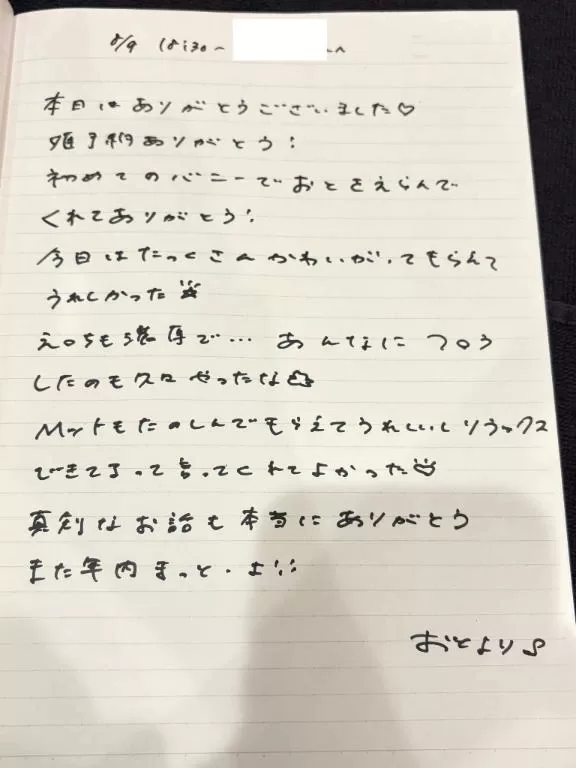 8/9 18:30〜
本日はありがとうございました♡
姫予約ありがとう!
初めてのバニーでおとをえらんで
くれてありがとう!
今日はたっくさんかわいがってもらえて
うれしかった
え○ちも濃厚で… あんなに フ○ラ
したのも久々やったな
Mットもたのしんでもらえてうれしいしリラックス
できてるって言ってくれてよかった♡
真剣なお話も本当にありがとう
また年内まっと・よ!!
おとより